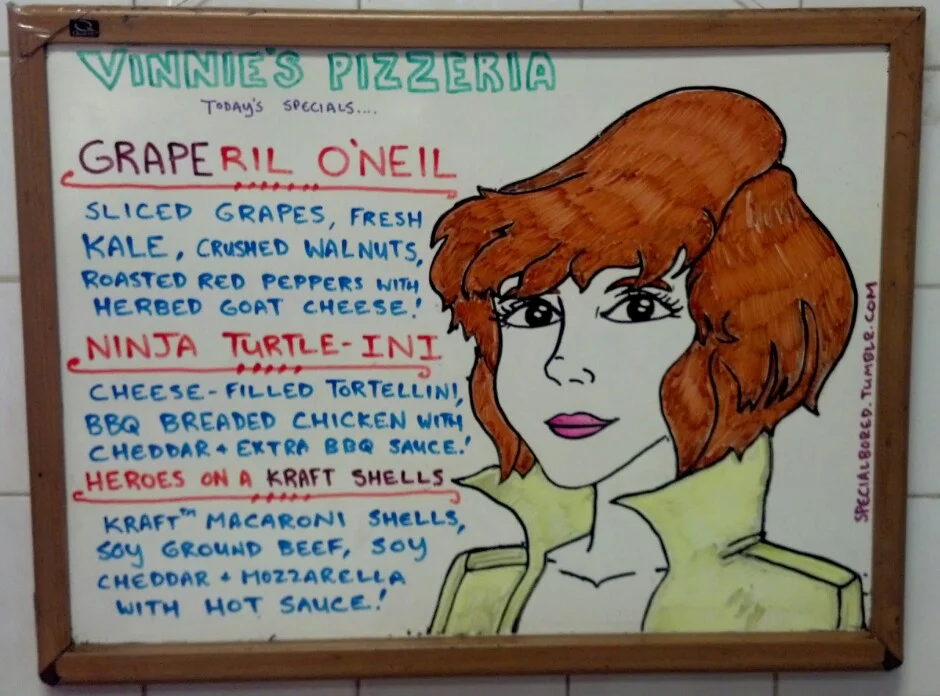 VINNIE'S PIZZERIA
TODAY'S SPECIALS....
GRAPERIL O'NEIL
SLICED GRAPES, FRESH
KALE, CRUSHED WALNUTS,
ROASTED RED PEPPERS WITH
HERBED GOAT CHEESE!
NINJA TURTLE-INI
CHEESE-FILLED TORTELLINI,
BBQ BREADED CHICKEN WITH
CHEDDAR + EXTRA BBQ SAUCE!
HEROES ON A KRAFT SHELLS
KRAFT™ MACARONI SHELLS,
SOY GROUND BEEF, SOY
CHEDDAR + MOZZARELLA
WITH HOT SAUCE!
SPECIALBORED.TUMBLR.COM